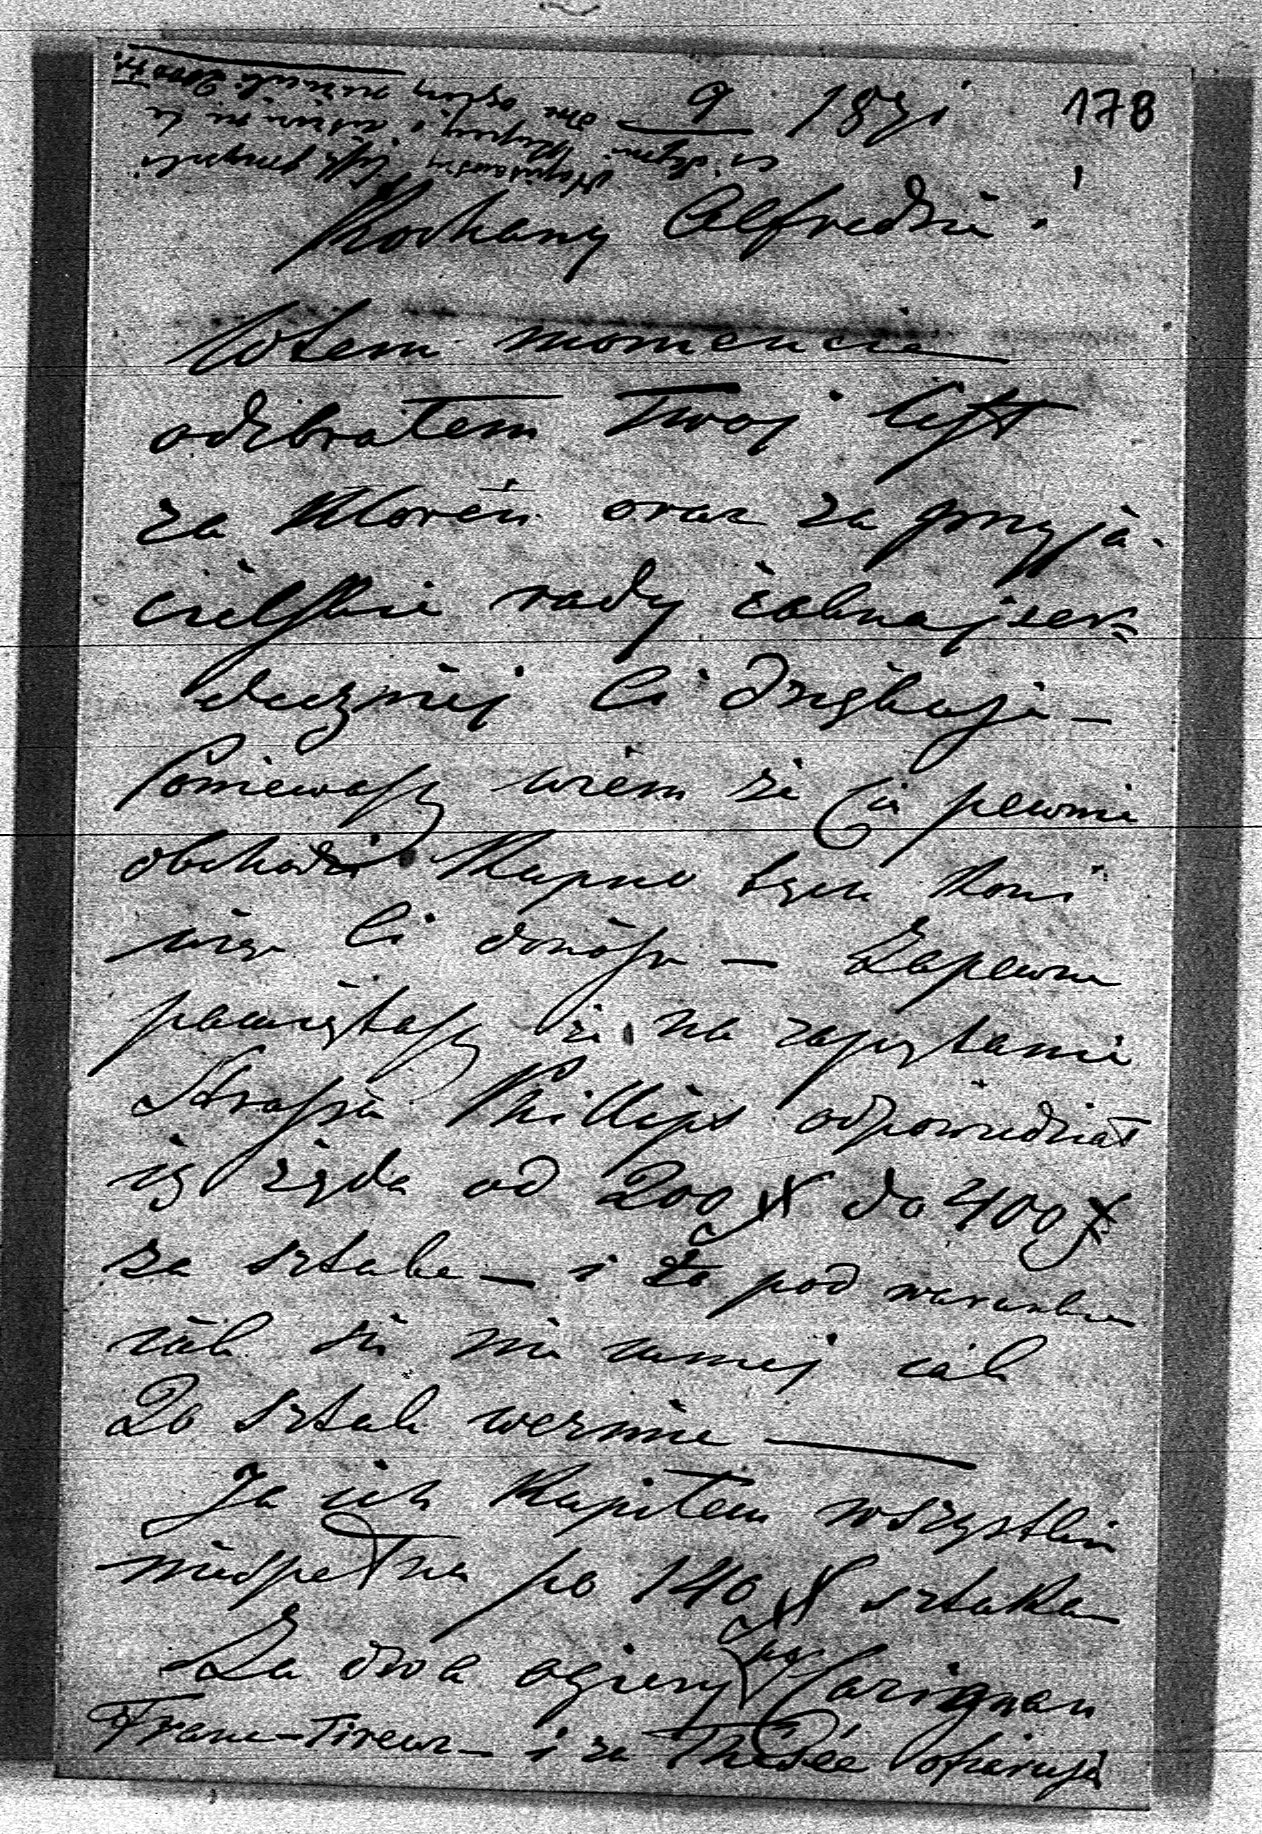 9 1871
178
Kochany Alfredzie!
W tem momencie
odebrałem Twoj list
za ktoren oraz za przyja-
cielskie rady jaknajser=
decznij Ci dziękuje –
Poniewasz wiem że Cię pewnie
obchodzi kupno tych koni
więc Ci donosze – Zapewne
pamiętasz że na zapytanie
Strassa Phillips odpowiedział
iż żąda od 200 # do 400 #
za sztukę – i to pod warunkiem
jak się nie mniej jak
20 sztuk wezmie –
Ja ich kupiłem wszystkie
niespełna po 140 # sztuka
Za dwa ogiery Carignan
Franc-Tireur – i za Thésée ofiarują